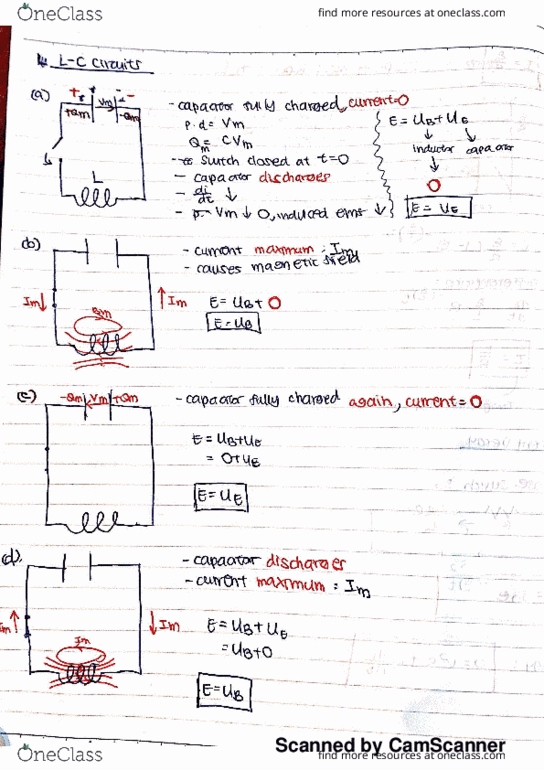 OneClass
find more resources at oneclass.com
L-C Circuits
(a)
+ Vm -
+Qm -Qm
L
- capacitor fully charged, current=0
p.d = Vm
Qm = CVm
- Switch closed at t=0
- capacitor discharges
- di/dt ↓
- Vm ↓ 0, induced emf ↓
E = UB + UE
inductor capacitor
0
E = UE
(b)
Im↓ ↑Im
Bm
- current maximum : Im
- causes magnetic field
E = UB + 0
E = UB
(c)
-Qm Vm +Qm
- capacitor fully charged again, current = 0
E = UB+UE
= 0+UE
E = UE
(d).
Im ↑ ↓Im
- capacitor discharges
- current maximum : Im
E = UB + UE
= UB+0
E = UB
Scanned by CamScanner
OneClass
find more resources at oneclass.com